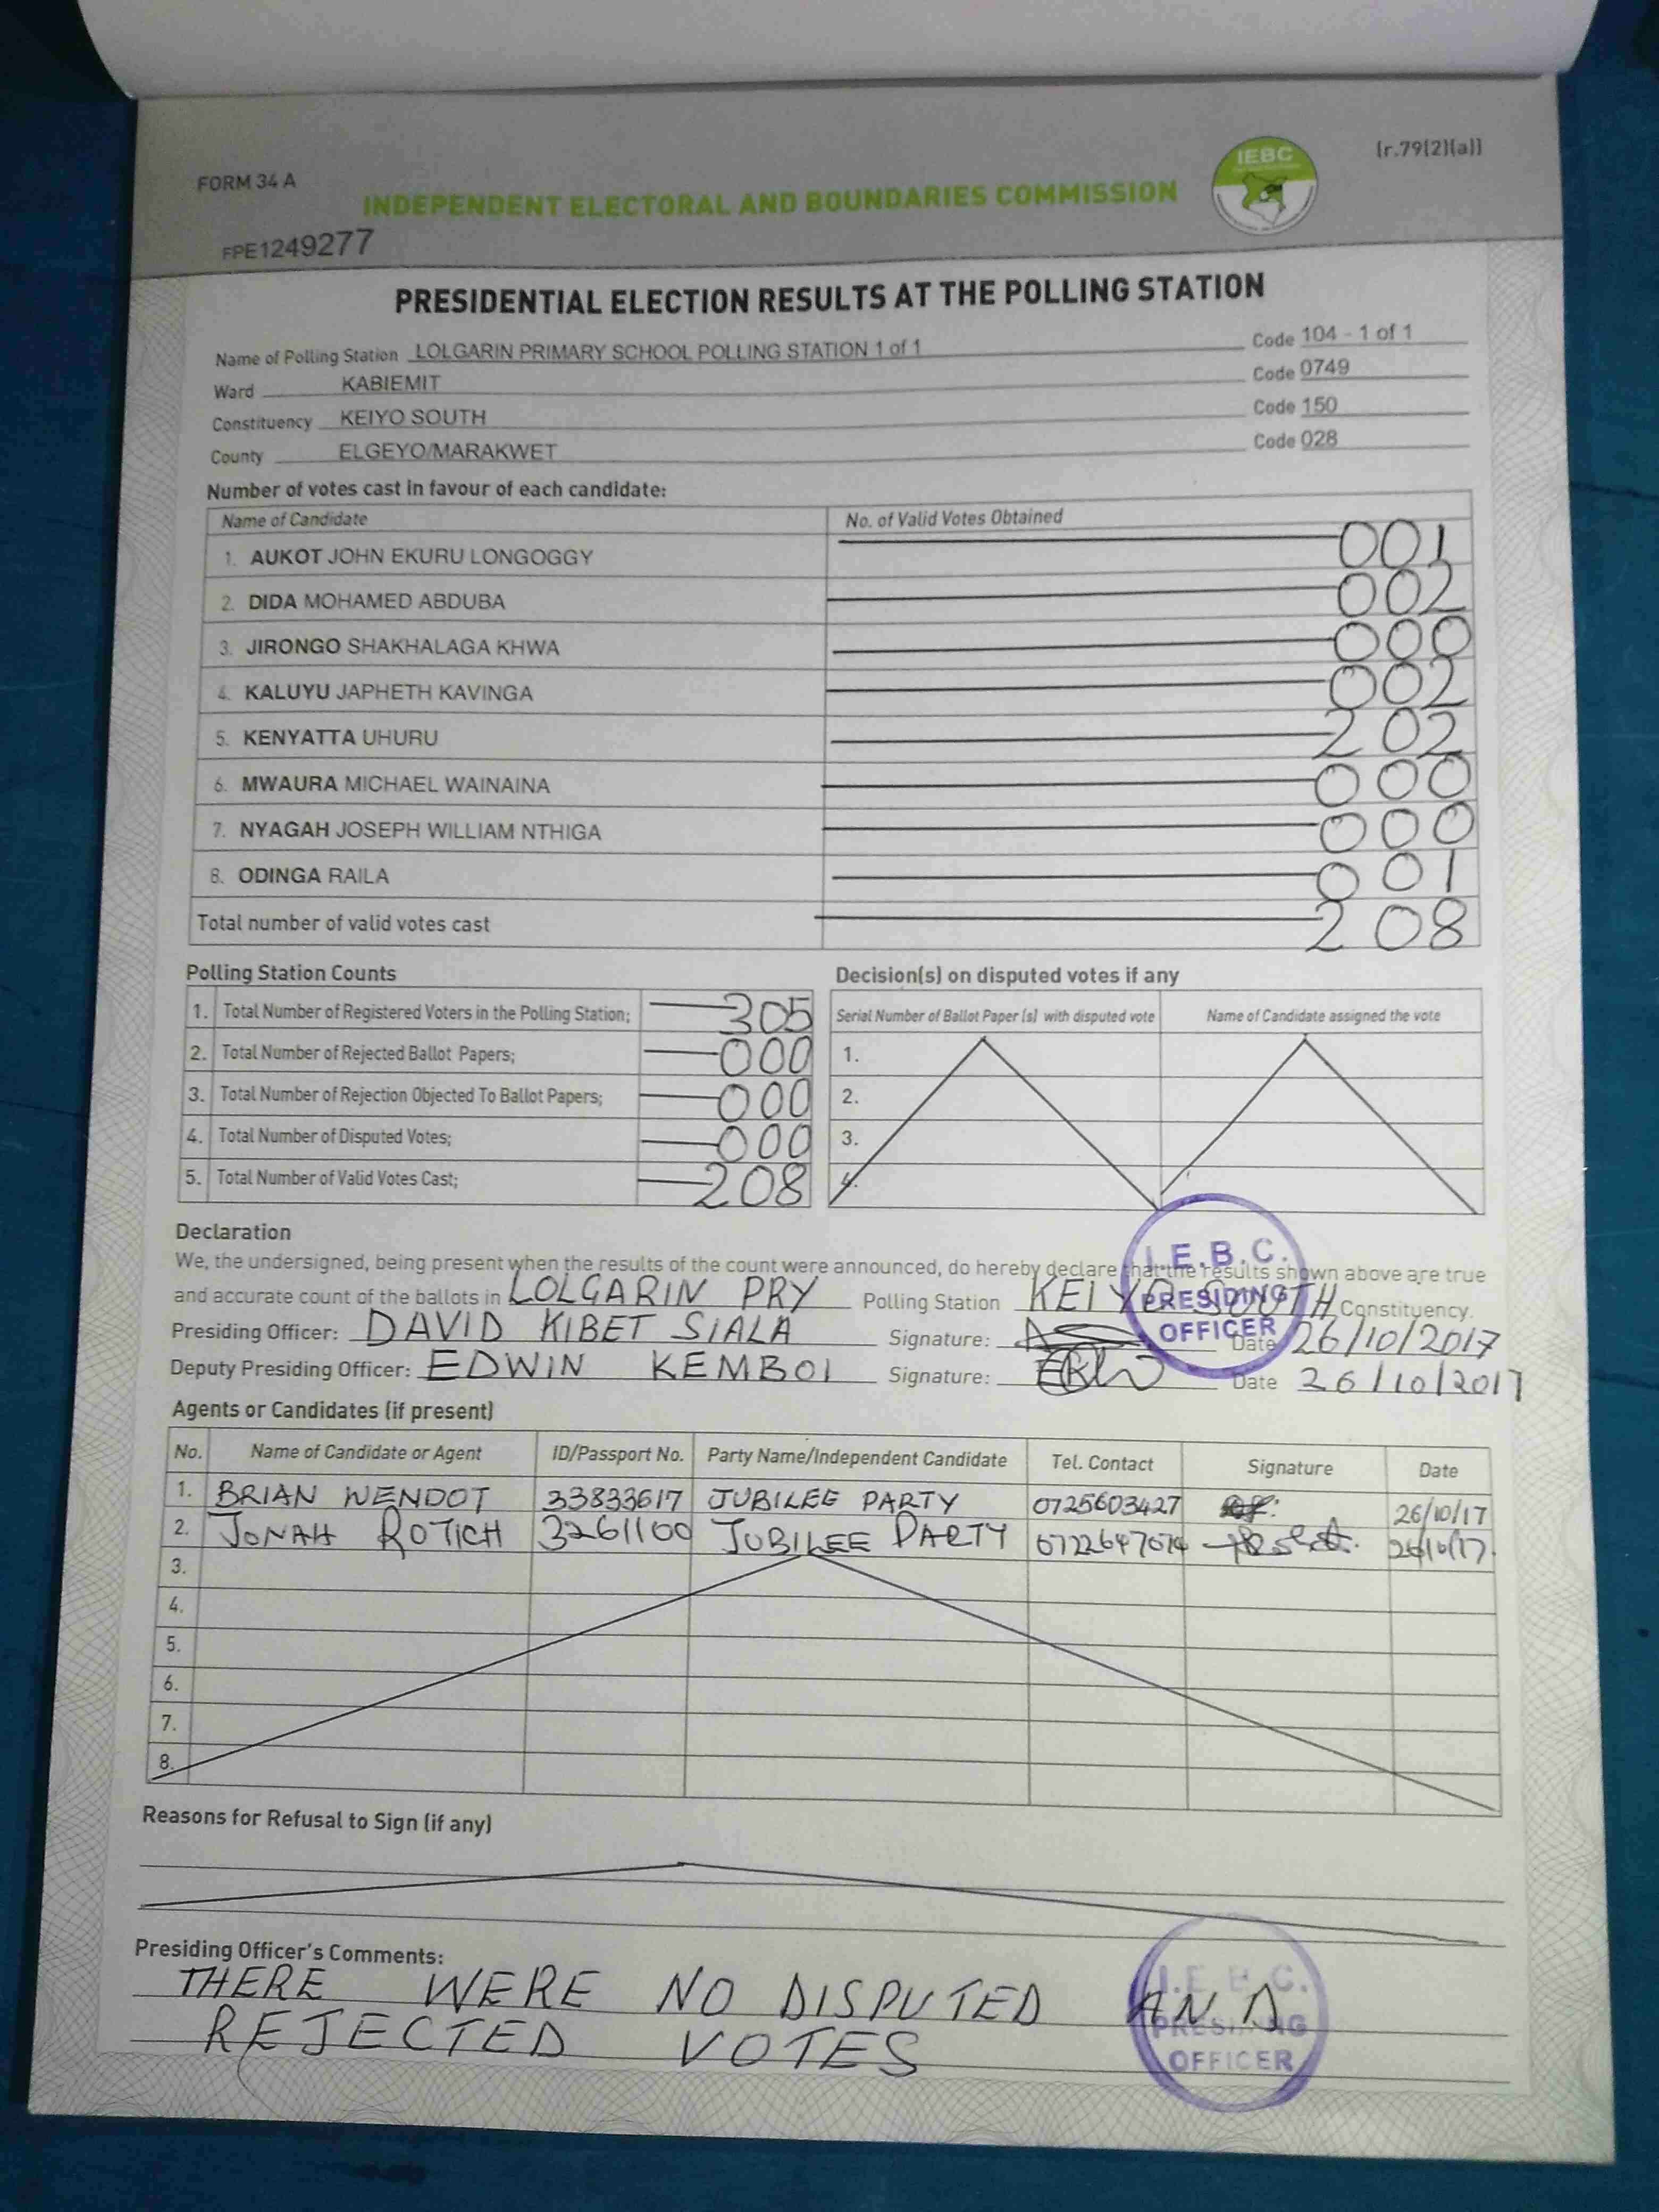 FORM 34 A
(r.79(2)(a))
IEBC
INDEPENDENT ELECTORAL AND BOUNDARIES COMMISSION
FPE1249277
PRESIDENTIAL ELECTION RESULTS AT THE POLLING STATION
Name of Polling Station LOLGARIN PRIMARY SCHOOL POLLING STATION 1 of 1 Code 104 - 1 of 1
Ward KABIEMIT Code 0749
Constituency KEIYO SOUTH Code 150
County ELGEYO/MARAKWET Code 028
Number of votes cast in favour of each candidate:
Name of Candidate No. of Valid Votes Obtained
1. AUKOT JOHN EKURU LONGOGGY 001
2. DIDA MOHAMED ABDUBA 002
3. JIRONGO SHAKHALAGA KHWA 000
4. KALUYU JAPHETH KAVINGA 002
5. KENYATTA UHURU 202
6. MWAURA MICHAEL WAINAINA 000
7. NYAGAH JOSEPH WILLIAM NTHIGA 000
8. ODINGA RAILA 001
Total number of valid votes cast 208
Polling Station Counts
1. Total Number of Registered Voters in the Polling Station; 305
2. Total Number of Rejected Ballot Papers; 000
3. Total Number of Rejection Objected To Ballot Papers; 000
4. Total Number of Disputed Votes; 000
5. Total Number of Valid Votes Cast; 208
Decision(s) on disputed votes if any
Serial Number of Ballot Paper (s) with disputed vote Name of Candidate assigned the vote
1.
2.
3.
4.
Declaration
We, the undersigned, being present when the results of the count were announced, do hereby declare that the results shown above are true
and accurate count of the ballots in LOLGARIN PRY Polling Station KEIYO SOUTH Constituency.
Presiding Officer: DAVID KIBET SIALA Signature: Date 26/10/2017
Deputy Presiding Officer: EDWIN KEMBOI Signature: Date 26/10/2017
I.E.B.C.
PRESIDING
OFFICER
Agents or Candidates (if present)
No. Name of Candidate or Agent ID/Passport No. Party Name/Independent Candidate Tel. Contact Signature Date
1. BRIAN WENDOT 33833617 JUBILEE PARTY 0725603427 26/10/17
2. JONAH ROTICH 32611600 JUBILEE PARTY
3.
4.
5.
6.
7.
8.
Reasons for Refusal to Sign (if any)
Presiding Officer's Comments:
THERE WERE NO DISPUTED AND
REJECTED VOTES
I.E.B.C.
PRESIDING
OFFICER